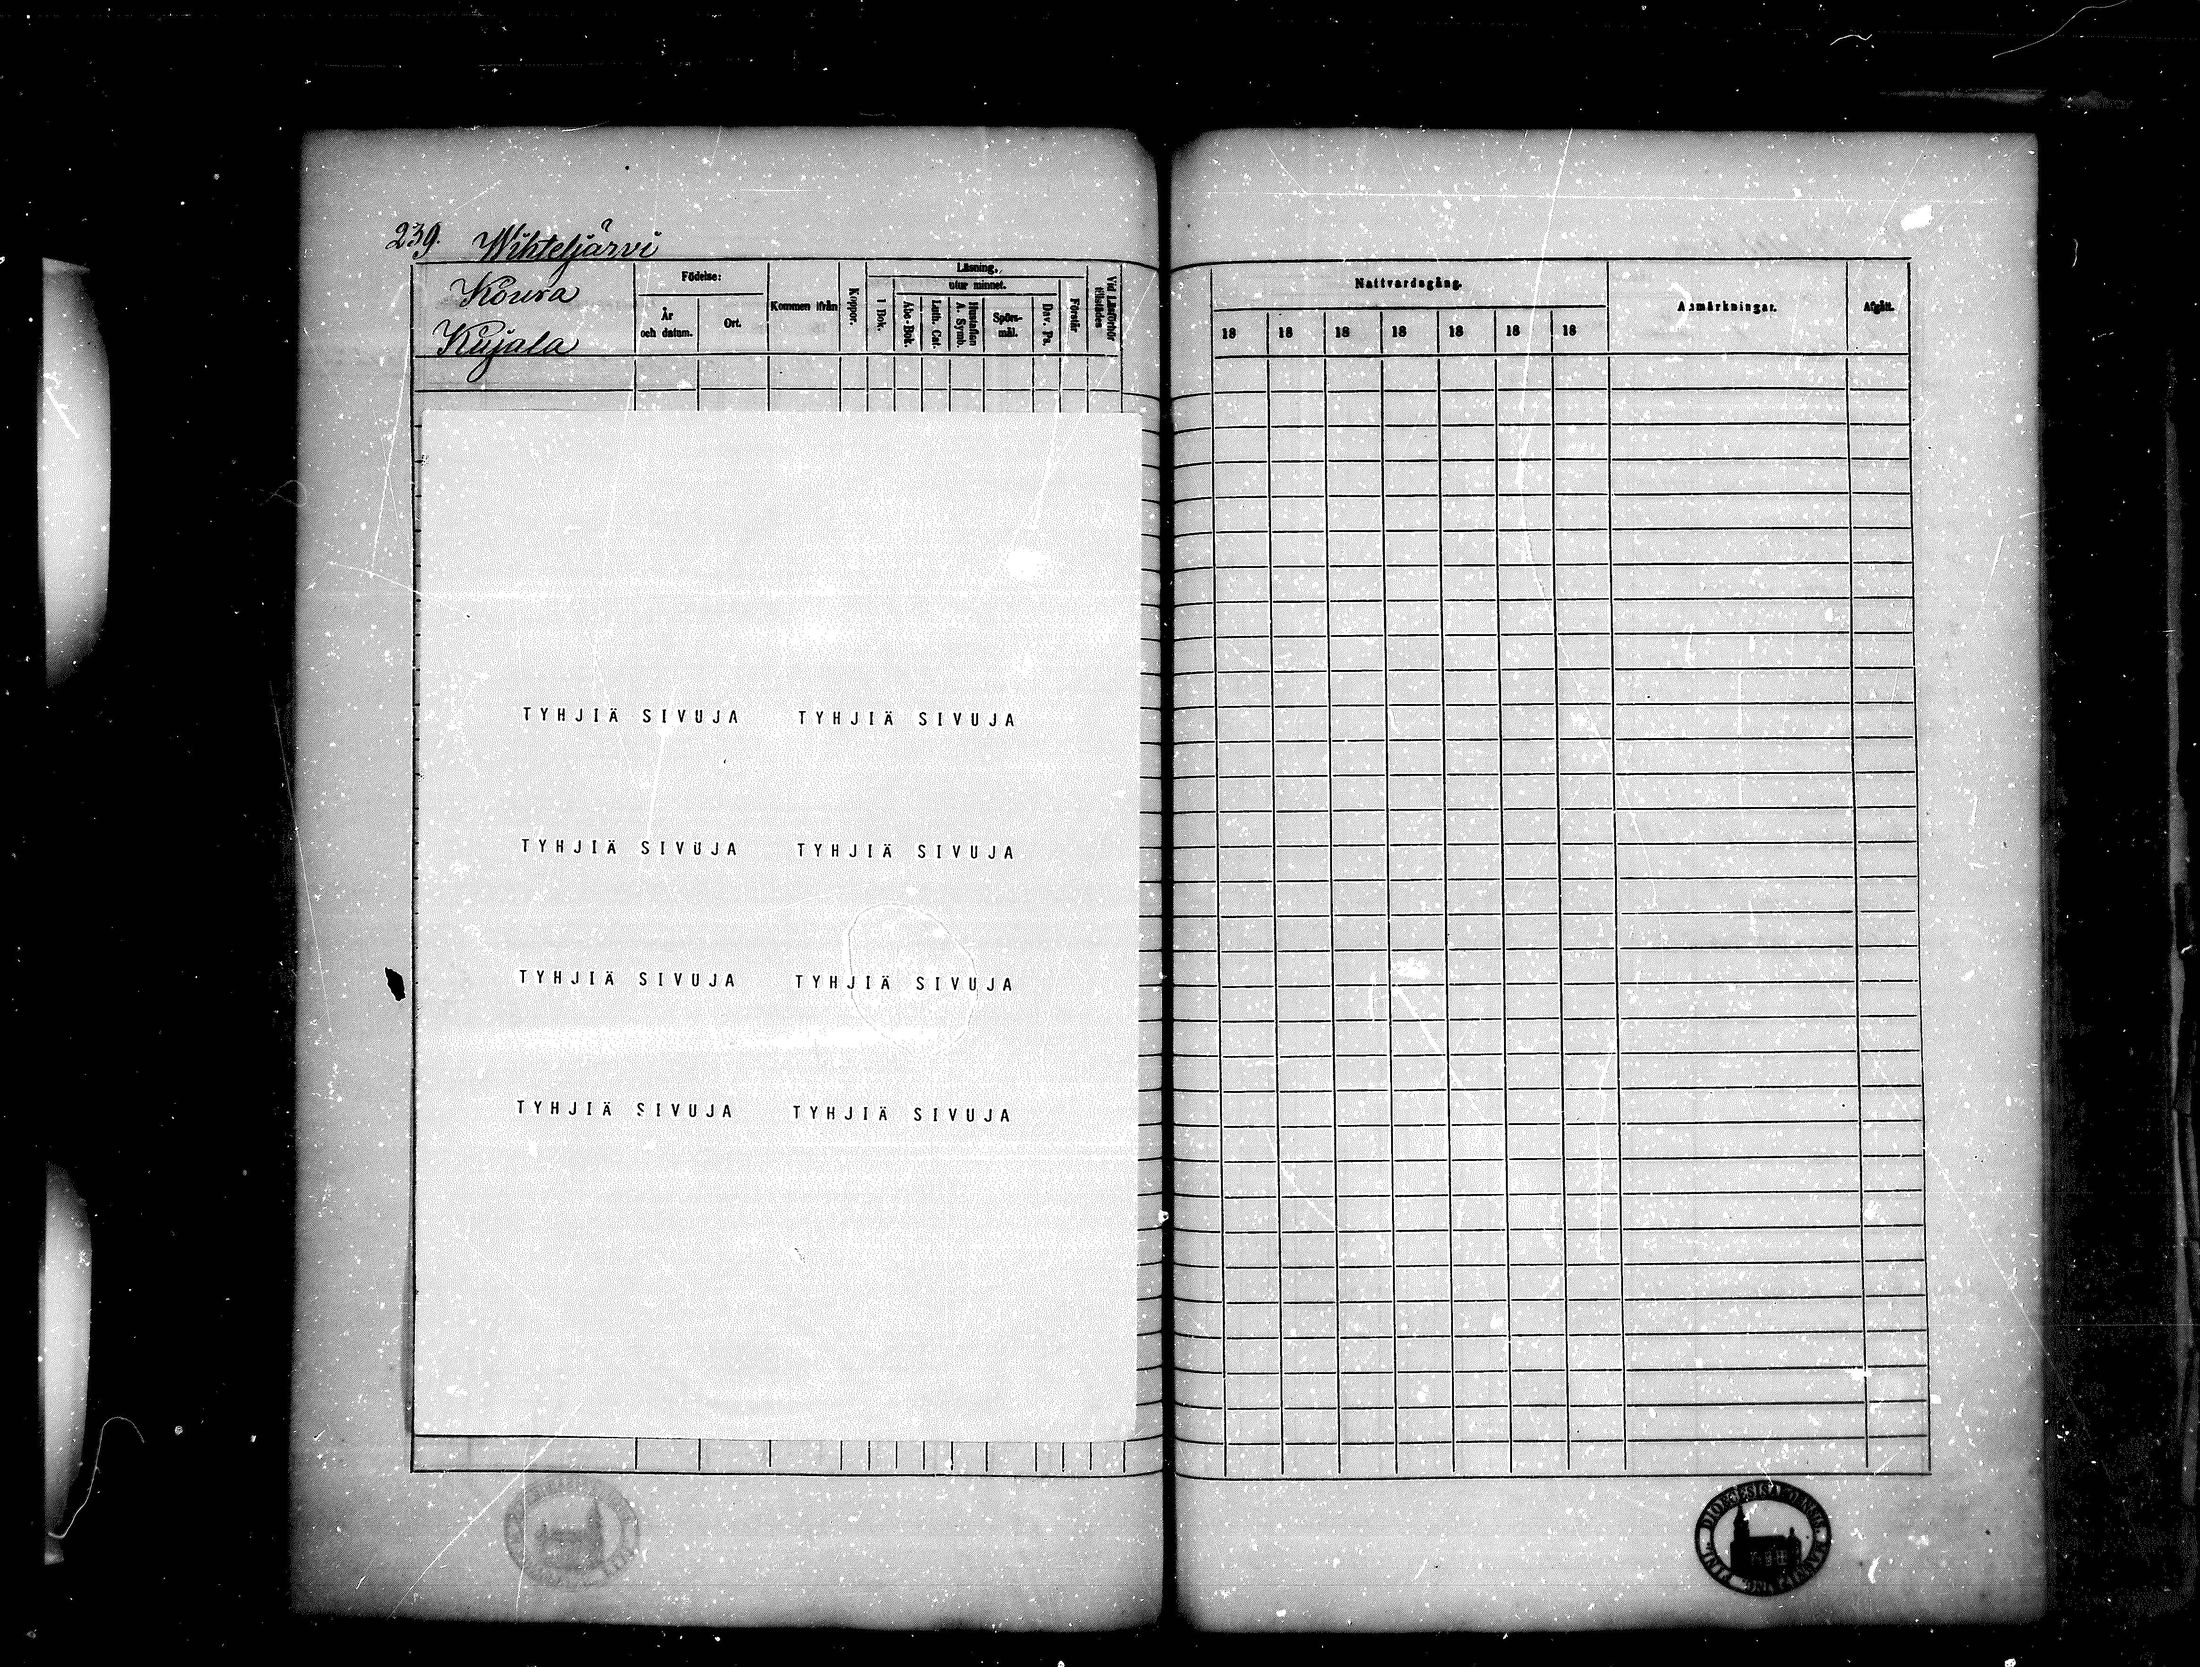 239. Wihteljärvi
Koura
Kujala
Födelse:
År
och datum.
Ort.
Kommen ifrån
Koppor.
Läsning.
utur minnet.
I Bok.
Abc-Bok.
Luth. Cat.
Hustaflan
A. Symb.
Spörs-
mål.
Dav. Ps.
Förstår
Vid Läsförhör
tillstädes
Nattvardsgång.
18 18 18 18 18 18 18
Anmärkningar.
Afgått.
TYHJIÄ SIVUJA TYHJIÄ SIVUJA
TYHJIÄ SIVUJA TYHJIÄ SIVUJA
TYHJIÄ SIVUJA TYHJIÄ SIVUJA
TYHJIÄ SIVUJA TYHJIÄ SIVUJA